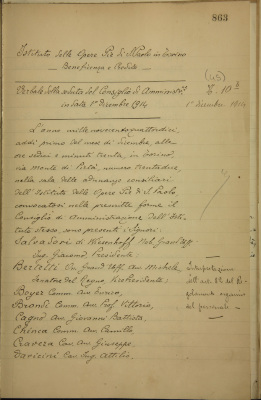 863
Istituto delle Opere Pie di S. Paolo in Torino
— Beneficenza e Credito —
(45)
Verbale della seduta del Consiglio di Amministraz.
in data 1° Dicembre 1914
1° dicembre 1914
L'anno millenovecentoquattordici,
addì primo del mese di Dicembre, alle
ore sedici e minuti trenta, in Torino,
via Monte di Pietà, numero trentadue
nella sala delle adunanze consiliari
dell'Istituto delle Opere Pie di S. Paolo,
convocatosi nella prescritta forma il
Consiglio di Amministrazione dell'Isti-
tuto stesso, sono presenti i Signori:
Ing. Giacomo, Presidente.
Bertetti On. Grand'Uff. Avv. Michele,
Senatore del Regno, Vicepresidente.
Interpretazione
del Re-
golamento organico
del personale —
Boyer Comm. Avv. Enrico,
Brondi Comm. Avv. Prof. Vittorio,
Cagno Avv. Giovanni Battista,
Chinca Comm. Avv. Camillo,
Cravera Cav. Avv. Giuseppe,
Cav. Ing. Attilio,